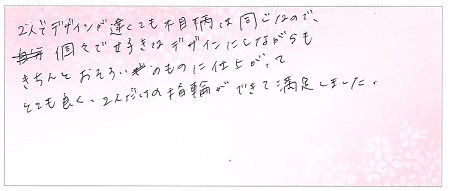 2人でデザインが違くても木目柄は同じなので、
個々で好きなデザインにしながらも
きちんとおそろいのものに仕上がって
とても良く、2人だけの指輪ができて満足しました。